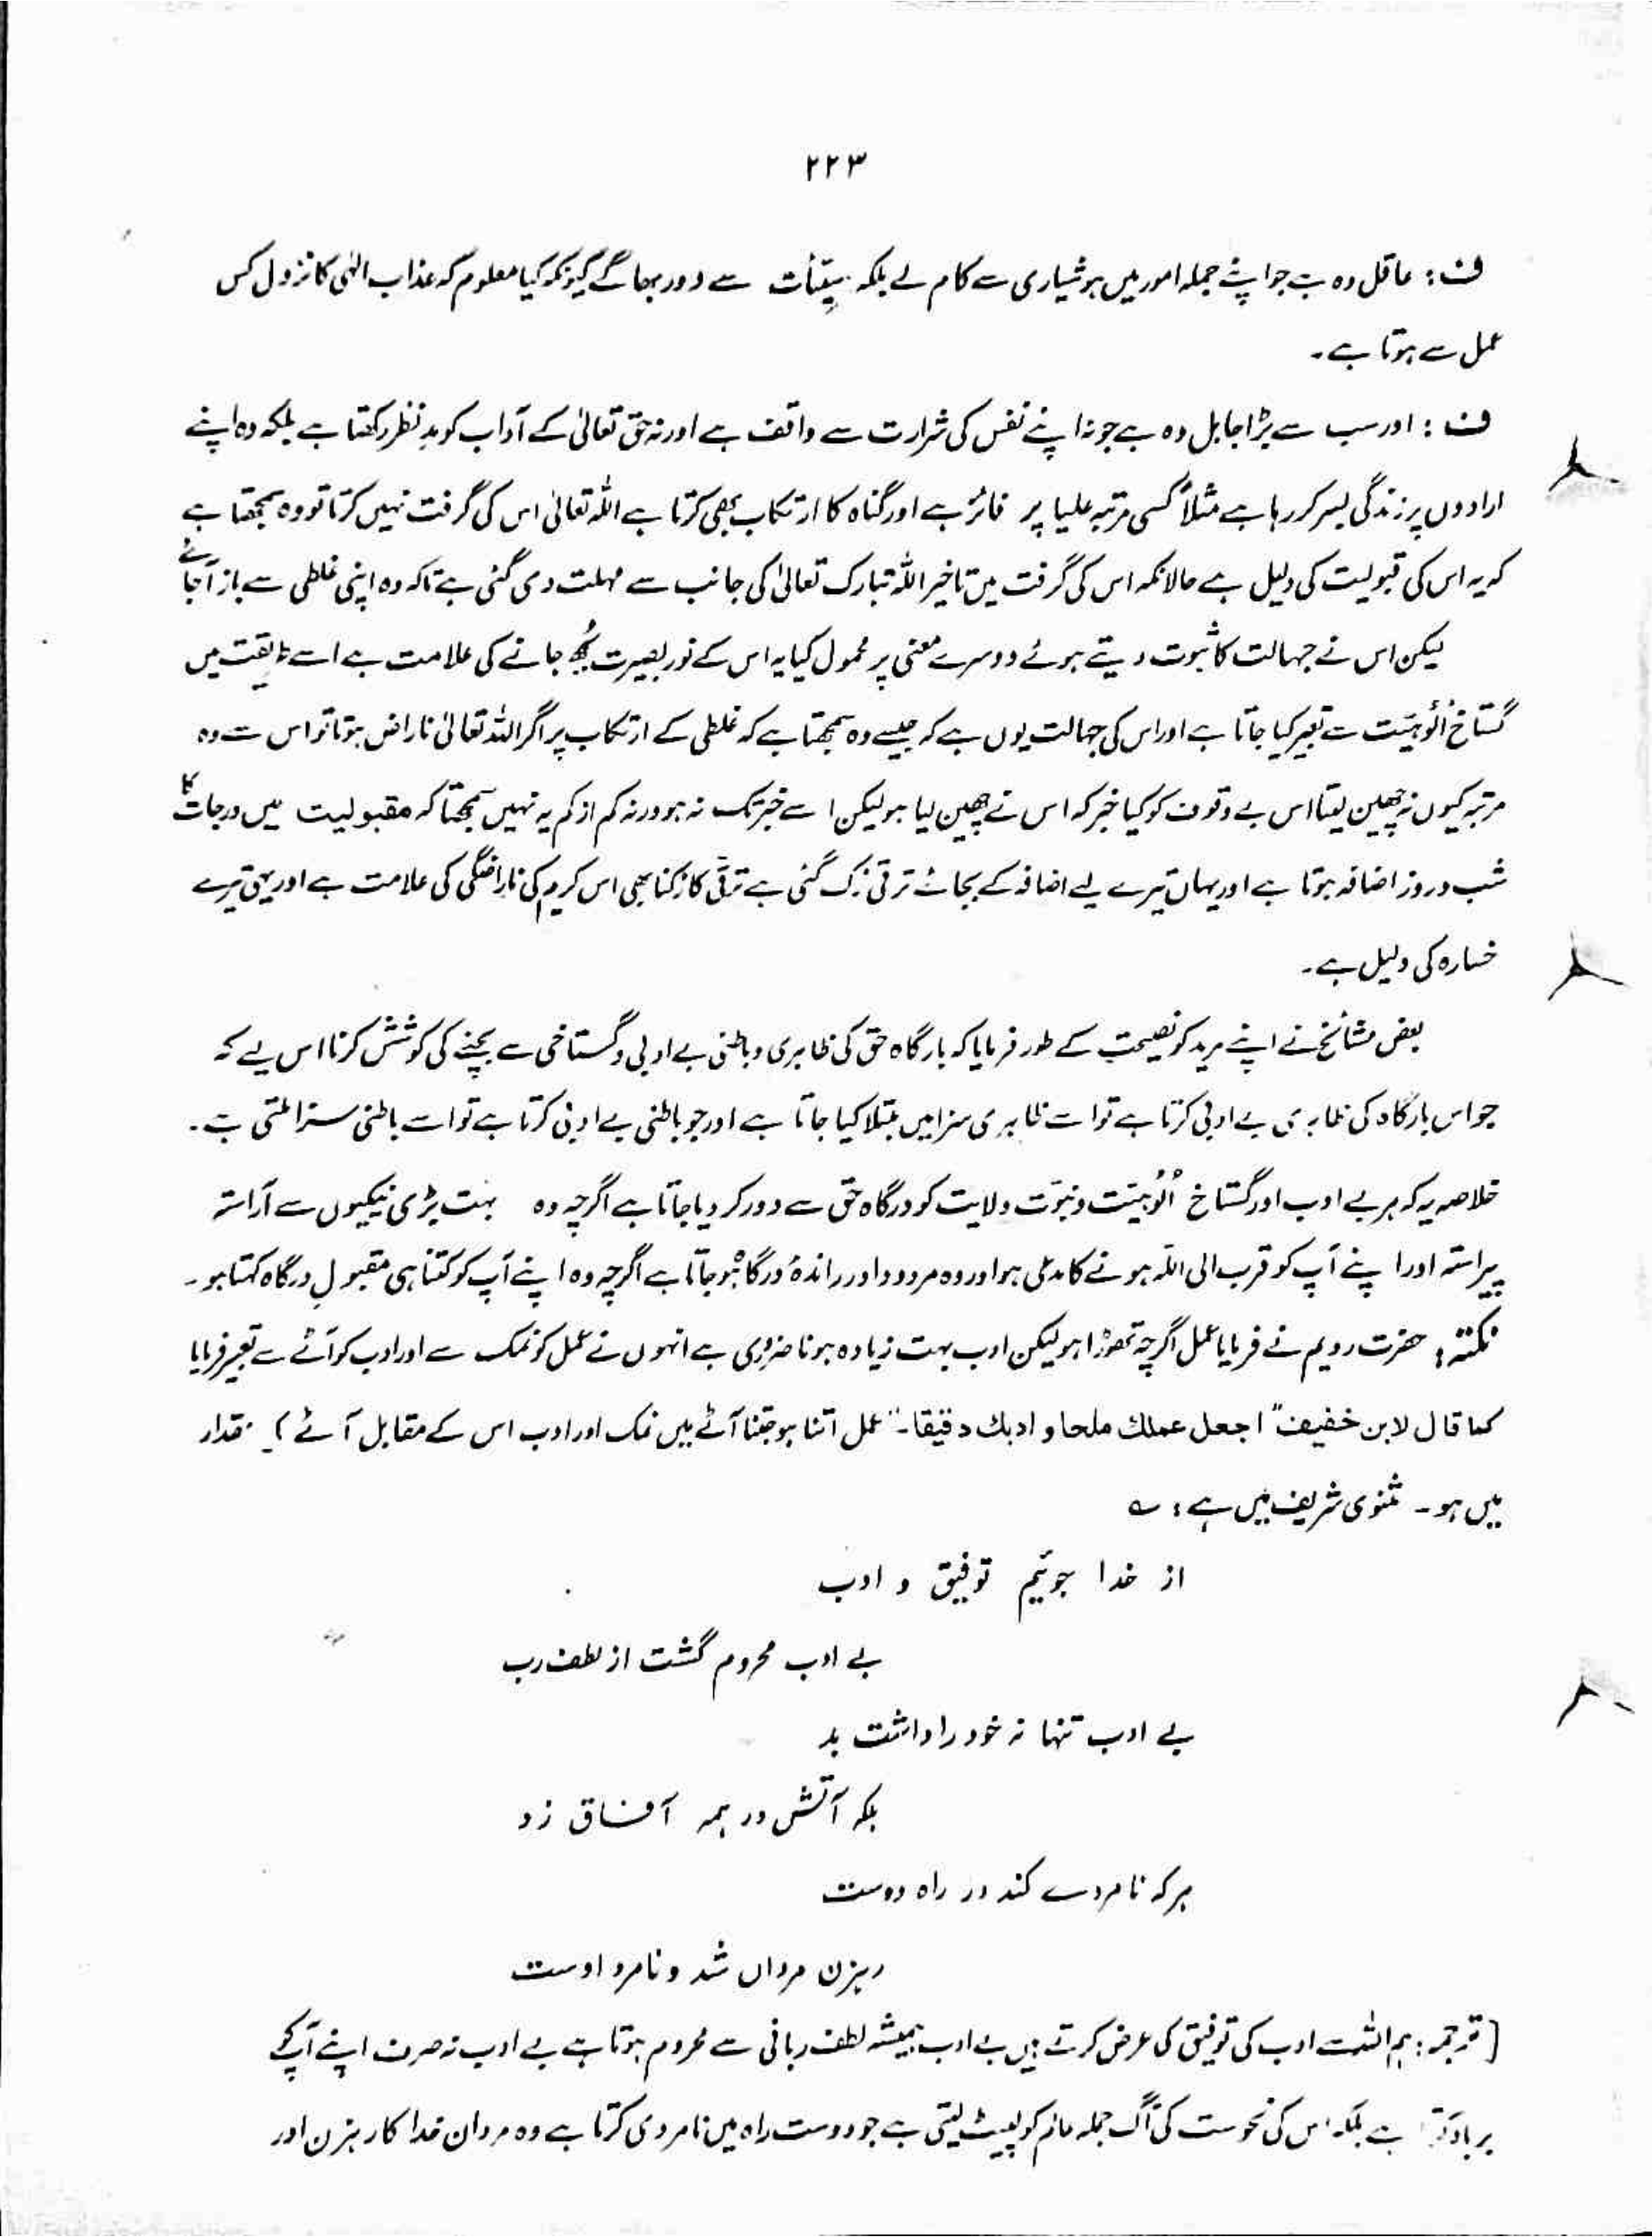 ۲۲۳
ف : عاقل وہ ہے جو اپنے جملہ امور میں ہوشیاری سے کام لے بلکہ سیّئات سے دور بھاگے کیونکہ کیا معلوم کہ عذاب الٰہی کا نزول کس
عمل سے ہوتا ہے۔
ف : اور سب سے بڑا جاہل وہ ہے جو نہ اپنے نفس کی شرارت سے واقف ہے اور نہ حق تعالیٰ کے آداب کو مدِ نظر رکھتا ہے بلکہ وہ اپنے
ارادوں پر زندگی بسر کر رہا ہے مثلاً کسی مرتبہ علیا پر فائز ہے اور گناہ کا ارتکاب بھی کرتا ہے اللہ تعالیٰ اس کی گرفت نہیں کرتا تو وہ سمجھتا ہے
کہ یہ اس کی قبولیت کی دلیل ہے حالانکہ اس کی گرفت میں تاخیر اللہ تبارک تعالیٰ کی جانب سے مہلت دی گئی ہے تاکہ وہ اپنی غلطی سے باز آجائے
لیکن اس نے جہالت کا ثبوت دیتے ہوئے دوسرے معنی پر محمول کیا یہ اس کے نور بصیرت بُجھ جانے کی علامت ہے اسے میں
گستاخِ اُلُوہیّت سے تعبیر کیا جاتا ہے اور اس کی جہالت یوں ہے کہ جیسے وہ سمجھتا ہے کہ غلطی کے ارتکاب پر اگر اللہ تعالیٰ ناراض ہوتا تو اس سے وہ
مرتبہ کیوں نہ چھین لیتا اس بے وقوف کو کیا خبر کہ اس نے چھین لیا ہو لیکن اسے خبر تک نہ ہو ورنہ کم از کم یہ نہیں سمجھتا کہ مقبولیت میں درجات کا
شب و روز اضافہ ہوتا ہے اور یہاں تیرے لیے اضافہ کے بجائے ترقی رُک گئی ہے ترقی کا رُکنا بھی اس کریم کی ناراضگی کی علامت ہے اور یہی تیرے
خسارہ کی دلیل ہے۔
بعض مشائخ نے اپنے مرید کو نصیحت کے طور فرمایا کہ بارگاہ حق کی ظاہری و باطنی بے ادبی و گستاخی سے بچنے کی کوشش کرنا اس لیے کہ
جو اس بارگاہ کی ظاہری بے ادبی کرتا ہے تو اسے ظاہری سزا میں مبتلا کیا جاتا ہے اور جو باطنی بے ادبی کرتا ہے تو اسے باطنی سزا ملتی ہے۔
خلاصہ یہ کہ ہر بے ادب اور گستاخِ اُلُوہیّت و نبوّت و ولایت کو درگاہ حق سے دور کر دیا جاتا ہے اگرچہ وہ بہت بڑی نیکیوں سے آراستہ
پیراستہ اور اپنے آپ کو قرب الی اللہ ہونے کا مدعی ہو اور وہ مردود اور راندۂ درگاہ ہو جاتا ہے اگرچہ وہ اپنے آپ کو کتنا ہی مقبولِ درگاہ کہتا ہو۔
نکتہ : حضرت رویم نے فرمایا عمل اگرچہ تھوڑا ہو لیکن ادب بہت زیادہ ہونا ضروری ہے انہوں نے عمل کو نمک سے اور ادب کو آٹے سے تعبیر فرمایا
کما قال لابن خفیف" اجعل عملك ملحا و ادبك دقیقا۔" عمل اتنا ہو جتنا آٹے میں نمک اور ادب اس کے مقابل آٹے کی مقدار
میں ہو۔ مثنوی شریف میں ہے : ے
از خدا جوئیم توفیق و ادب
بے ادب محروم گشت از لطف رب
بے ادب تنہا نہ خود را داشت بد
بلکہ آتش در ہمہ آفاق زد
ہر کہ نامردے کند در راہ دوست
رہزن مرداں شد و نامرد اوست
[ ترجمہ : ہم اللہ سے ادب کی توفیق کی عرض کرتے ہیں بے ادب ہمیشہ لطف ربانی سے محروم ہوتا ہے بے ادب نہ صرف اپنے آپ کو
برباد ہے بلکہ اس کی نحوست کی آگ جملہ عالم کو لپیٹ لیتی ہے جو دوست راہ میں نامردی کرتا ہے وہ مردان خدا کا رہزن اور